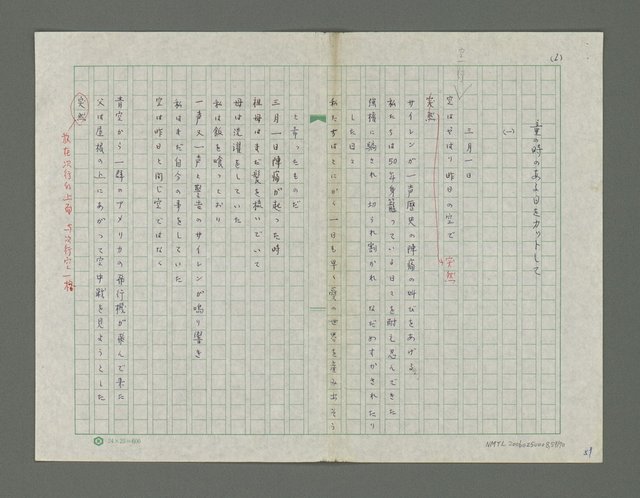 (2)
童の時のある日をカットして
(一)
三月一日
空はやはり昨日の空で 突然
空一行
突然
サイレンが一声歴史の陣痛の叫びをあげる。
私たちは50年身籠っている日々を耐え忍んできた
強権に騙され 切られ割かれ なだめすかされたり
した日々
私たちはとにかく一日も早く愛の世界を産み出そう
と言ったものだ
三月一日陣痛が起った時
祖母はまだ髪を梳いでいて
母は洗濯をしていた
私は飯を喰っており
一声又一声と警告のサイレンが鳴り響き
私はまだ自分の事をしていた
空は昨日と同じ空ではなく
青空から一群のアメリカの飛行機が飛んで来た
父は屋根の上にあがって空中戦を見ようとした
突然
放在次行的上面 与次行空一格
24×25=600
NMTL